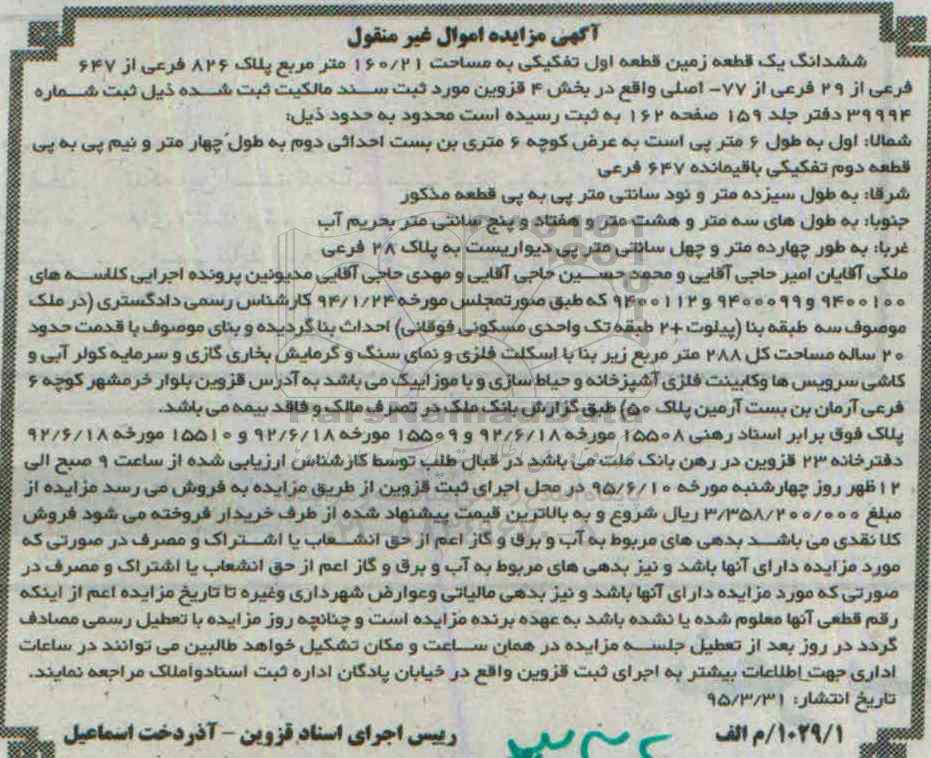 آگهی مزایده اموال غیر منقول
ششدانگ یک قطعه زمین قطعه اول تفکیکی به مساحت ۱۶۰/۲۱ متر مربع پلاک ۸۲۶ فرعی از ۶۴۷
فرعی از ۲۹ فرعی از ۷۷- اصلی واقع در بخش ۴ قزوین مورد ثبت سند مالکیت ثبت شده ذیل ثبت شماره
۳۹۹۹۴ دفتر جلد ۱۵۹ صفحه ۱۶۲ به ثبت رسیده است محدود به حدود ذیل:
شمالا: اول به طول ۶ متر پی است به عرض کوچه ۶ متری بن بست احداثی دوم به طول چهار متر و نیم پی به پی
قطعه دوم تفکیکی باقیمانده ۶۴۷ فرعی
شرقا: به طول سیزده متر و نود سانتی متر پی به پی قطعه مذکور
جنوبا: به طول های سه متر و هشت متر و هفتاد و پنج سانتی متر بحریم آب
غربا: به طور چهارده متر و چهل سانتی متر پی دیواریست به پلاک ۲۸ فرعی
ملکی آقایان امیر حاجی آقایی و محمد حسین حاجی آقایی و مهدی حاجی آقایی مدیونین پرونده اجرایی کلاسه های
۹۴۰۰۱۰۰ و ۹۴۰۰۰۹۹ و ۹۴۰۰۱۱۲ که طبق صورتمجلس مورخه ۹۴/۱/۲۴ کارشناس رسمی دادگستری (در ملک
موصوف سه طبقه بنا (پیلوت +۲ طبقه تک واحدی مسکونی فوقانی) احداث بنا گردیده و بنای موصوف با قدمت حدود
۲۰ ساله مساحت کل ۲۸۸ متر مربع زیر بنا با اسکلت فلزی و نمای سنگ و گرمایش بخاری گازی و سرمایه کولر آبی و
کاشی سرویس ها وکابینت فلزی آشپزخانه و حیاط سازی و با موزاییک می باشد به آدرس قزوین بلوار خرمشهر کوچه ۶
فرعی آرمان بن بست آرمین پلاک ۵۰) طبق گزارش بانک ملک در تصرف مالک و فاقد بیمه می باشد.
پلاک فوق برابر اسناد رهنی ۱۵۵۰۸ مورخه ۹۲/۶/۱۸ و ۱۵۵۰۹ مورخه ۹۲/۶/۱۸ و ۱۵۵۱۰ مورخه ۹۲/۶/۱۸
دفترخانه ۲۳ قزوین در رهن بانک ملت می باشد در قبال طلب توسط کارشناس ارزیابی شده از ساعت ۹ صبح الی
۱۲ ظهر روز چهارشنبه مورخه ۹۵/۶/۱۰ در محل اجرای ثبت قزوین از طریق مزایده به فروش می رسد مزایده از
مبلغ ۳/۳۵۸/۲۰۰/۰۰۰ ریال شروع و به بالاترین قیمت پیشنهاد شده از طرف خریدار فروخته می شود فروش
کلا نقدی می باشد بدهی های مربوط به آب و برق و گاز اعم از حق انشعاب یا اشتراک و مصرف در صورتی که
مورد مزایده دارای آنها باشد و نیز بدهی های مربوط به آب و برق و گاز اعم از حق انشعاب یا اشتراک و مصرف در
صورتی که مورد مزایده دارای آنها باشد و نیز بدهی مالیاتی وعوارض شهرداری وغیره تا تاریخ مزایده اعم از اینکه
رقم قطعی آنها معلوم شده یا نشده باشد به عهده برنده مزایده است و چنانچه روز مزایده با تعطیل رسمی مصادف
گردد در روز بعد از تعطیل جلسه مزایده در همان ساعت و مکان تشکیل خواهد طالبین می توانند در ساعات
اداری جهت اطلاعات بیشتر به اجرای ثبت قزوین واقع در خیابان پادگان اداره ثبت اسنادواملاک مراجعه نمایند.
تاریخ انتشار: ۹۵/۳/۳۱
۱۰۲۹/۱/م الف
رییس اجرای اسناد قزوین - آذردخت اسماعیل